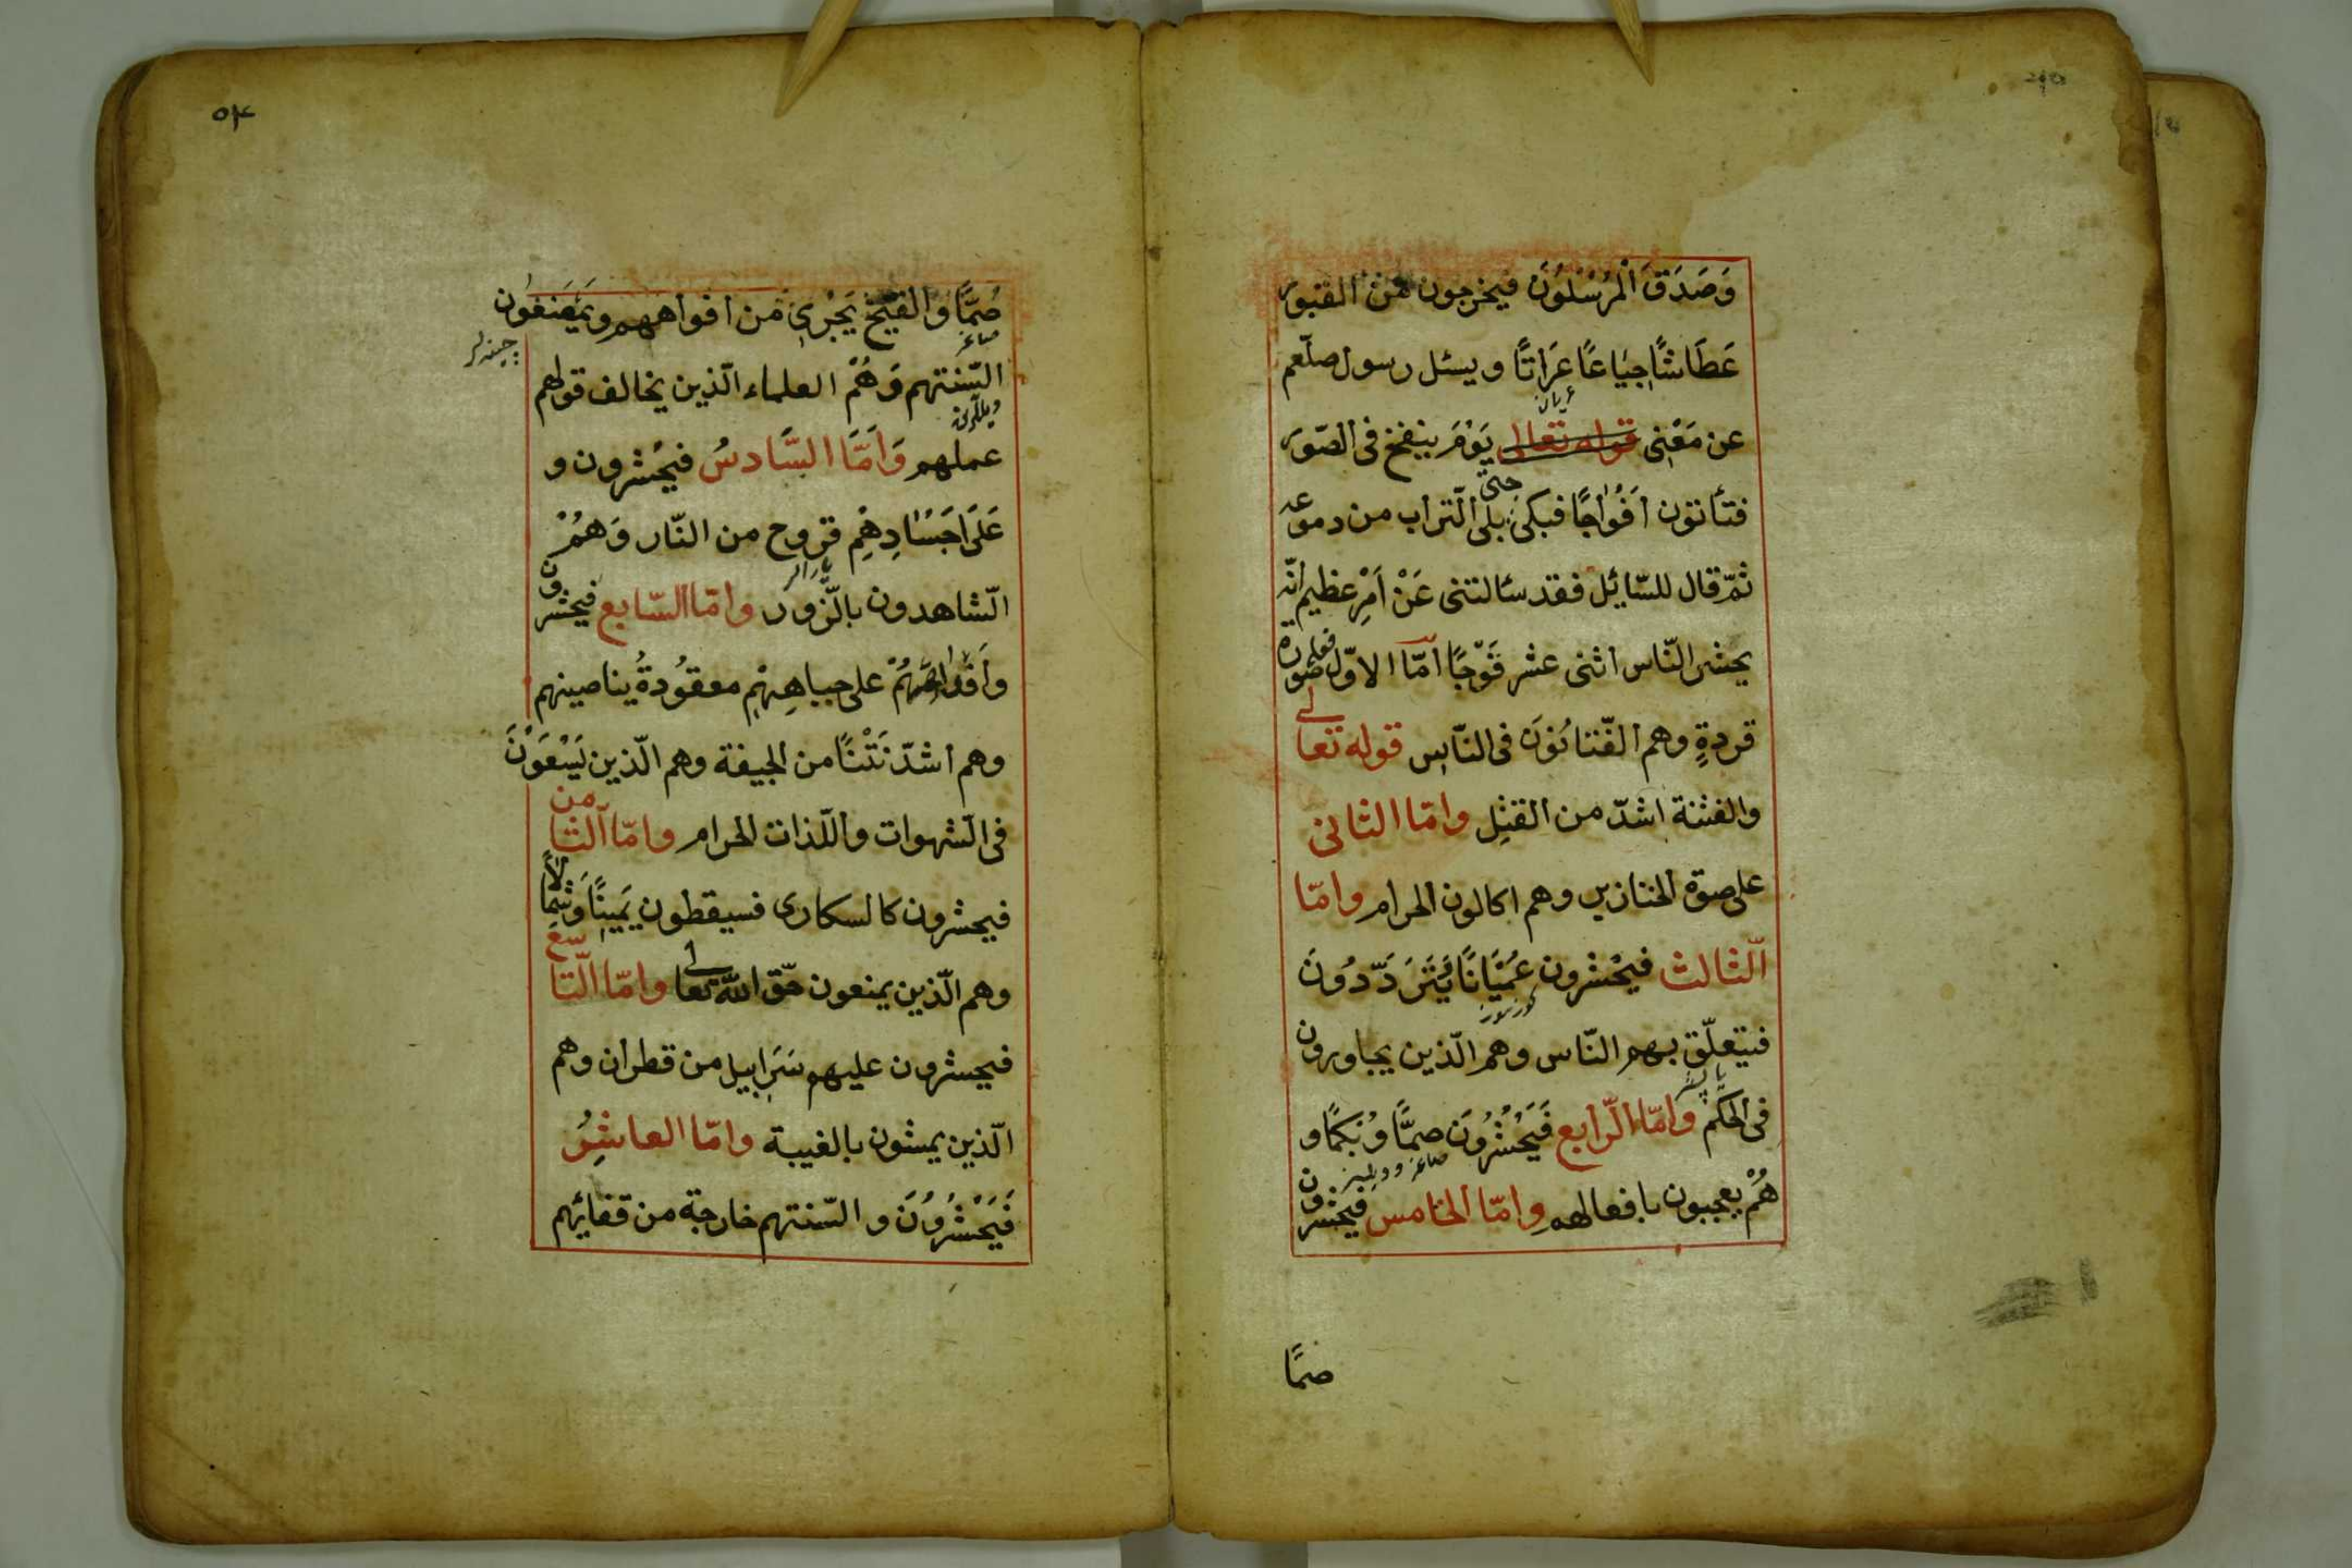 وَصَدَقَ الْمُرْسَلُونَ فيخرجون من القبور
عَطَاشًا جِيَاعًا عَرَاتًا ويسئل رسول صلّعم
عريان
عن مَعْنِى قوله تعالى يَوْمَ ينفخ فى الصّور
فتأتون اَفْوَاجًا فبكى حتّى بلى التراب من دموعه
ثمّ قال للسّائل فقد سئالتنى عَنْ اَمْرٍ عظيم انّه
يحشر النّاس اثنى عشر فَوْجًا اَمّا الاوّل فعلى صورة
قردةٍ وهم الفّتانُوَن فى النّاس قوله تعالى
والفتنة اشدّ من القتل وامّا الثانى
على صورة الخنازير وهم اكالون الحرام وامّا
الثّالث فيحْشرون عُمْيَانًا يَتَرَدّدُونَ
كورسوز
فيتعلّق بهم النّاس وهم الّذين يجاورون
فى الحكم وَامّا الرّابع فَيَحْشُرُونَ صمًّا وَبُكمًا و
هُمْ يعجبون بافعالهم وامّا الخامس فيحشرون
صمًّا
٥٤
صُمًّا وَالقيْحُ يَجْرِى من افواههم ويَمْضَغوُن
صاغر
چينرلر
السّنتهم وَهُمْ العلماء الّذين يخالف قولهم
عملهم وَاَمَّا السَّادسُ فيحُشرون و
عَلَى اَجسَادِهِمْ قروح من النّار وَهُمْ
الشّاهدون بالزّور وامّا السّابع فيحشرون
وأقدامهُمْ على جباهِهِمْ معقُودةُ بناصيتهم
وهم اشدّ نَتْنًا من الجيفة وهم الّذين يَسْعَوْنَ
فى الشهوات واللّذات الحرام وامّا الثّامن
فيحشرون كالسكارى فسيقطون يَمِينًا وَشِمَالاً
وهم الّذين يمنعون حقّ اللّه تعالى وامّا التّاسع
فيحشرون عليهم سَرَابيل من قطران وهم
الّذين يمشون بالغيبة وامّا العاشِرُ
فَيَحْشُرُونَ و السّنتهم خارجة من قفائهم